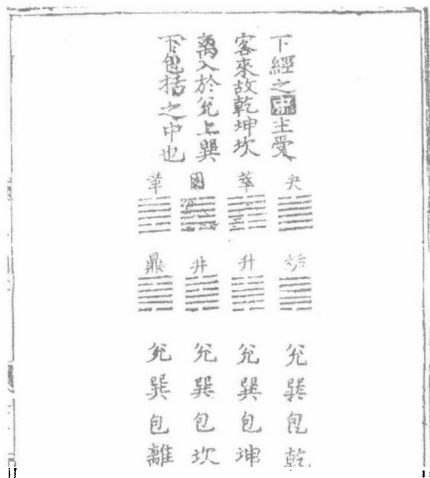 下經之主受
客來故乾坤坎
离入於兊上巽
下包括之中也
夬
萃
困
革
姤
升
井
鼎
兊巽包乾
兊巽包坤
兊巽包坎
兊巽包離